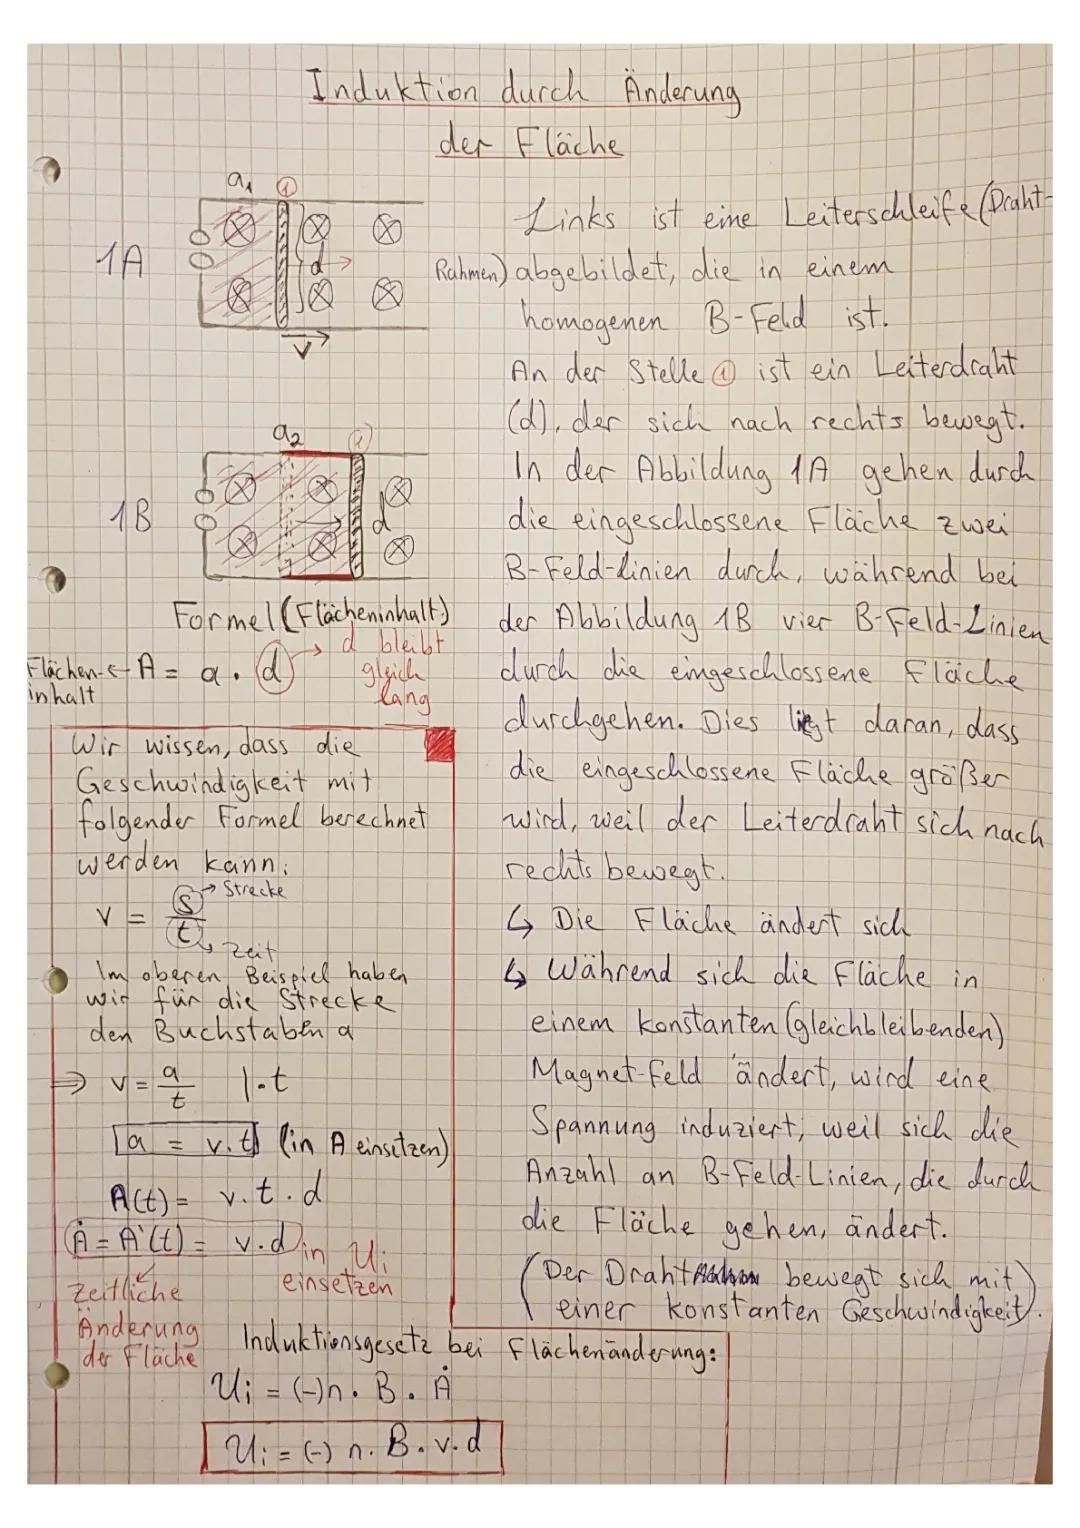 Induktion durch Änderung
der Fläche
a₁ ①
1A
d
v
Links ist eine Leiterschleife (Draht-
Rahmen) abgebildet, die in einem
homogenen B-Feld ist.
An der Stelle ① ist ein Leiterdraht
(d), der sich nach rechts bewegt.
In der Abbildung 1A gehen durch
die eingeschlossene Fläche zwei
B-Feld-Linien durch, während bei
der Abbildung 1B vier B-Feld-Linien
durch die eingeschlossene Fläche
durchgehen. Dies liegt daran, dass
die eingeschlossene Fläche größer
wird, weil der Leiterdraht sich nach
rechts bewegt.
↳ Die Fläche ändert sich
↳ Während sich die Fläche in
einem konstanten (gleichbleibenden)
Magnet-Feld ändert, wird eine
Spannung induziert, weil sich die
Anzahl an B-Feld-Linien, die durch
die Fläche gehen, ändert.
(Der Draht bewegt sich mit
einer konstanten Geschwindigkeit).
a₂ ①
1B
d
Formel (Flächeninhalt)
Flächen- ← A = a · d → d bleibt
inhalt
gleich
lang
Wir wissen, dass die
Geschwindigkeit mit
folgender Formel berechnet
werden kann:
v = s/t
→ Strecke
↳ Zeit
Im oberen Beispiel haben
wir für die Strecke
den Buchstaben a
⇒ v = a/t |·t
a = v·t (in A einsetzen)
A(t) = v·t·d
Ȧ = A'(t) = v·d in Ui
einsetzen
zeitliche
Änderung
der Fläche
Induktionsgesetz bei Flächenänderung:
Ui = (-) n · B · Ȧ
Ui = (-) n · B · v · d